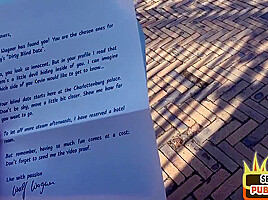 Wagner has found you! You are the chosen ones for
"Dirty Blind Date".
you look so innocent. But in your profile I read that
a little devil hiding inside of you. I can imagine
which side of you Cevin would like to get to know...
Your blind date starts here at the Charlottenburg palace.
Don't be shy, move a little bit closer. Show me how far
you want to go.
To let off more steam afterwards, I have reserved a hotel
room.
But remember, having so much fun comes at a cost:
Don't forget to send me the video proof.
With passion
Wolf Wagner
SE
PUB